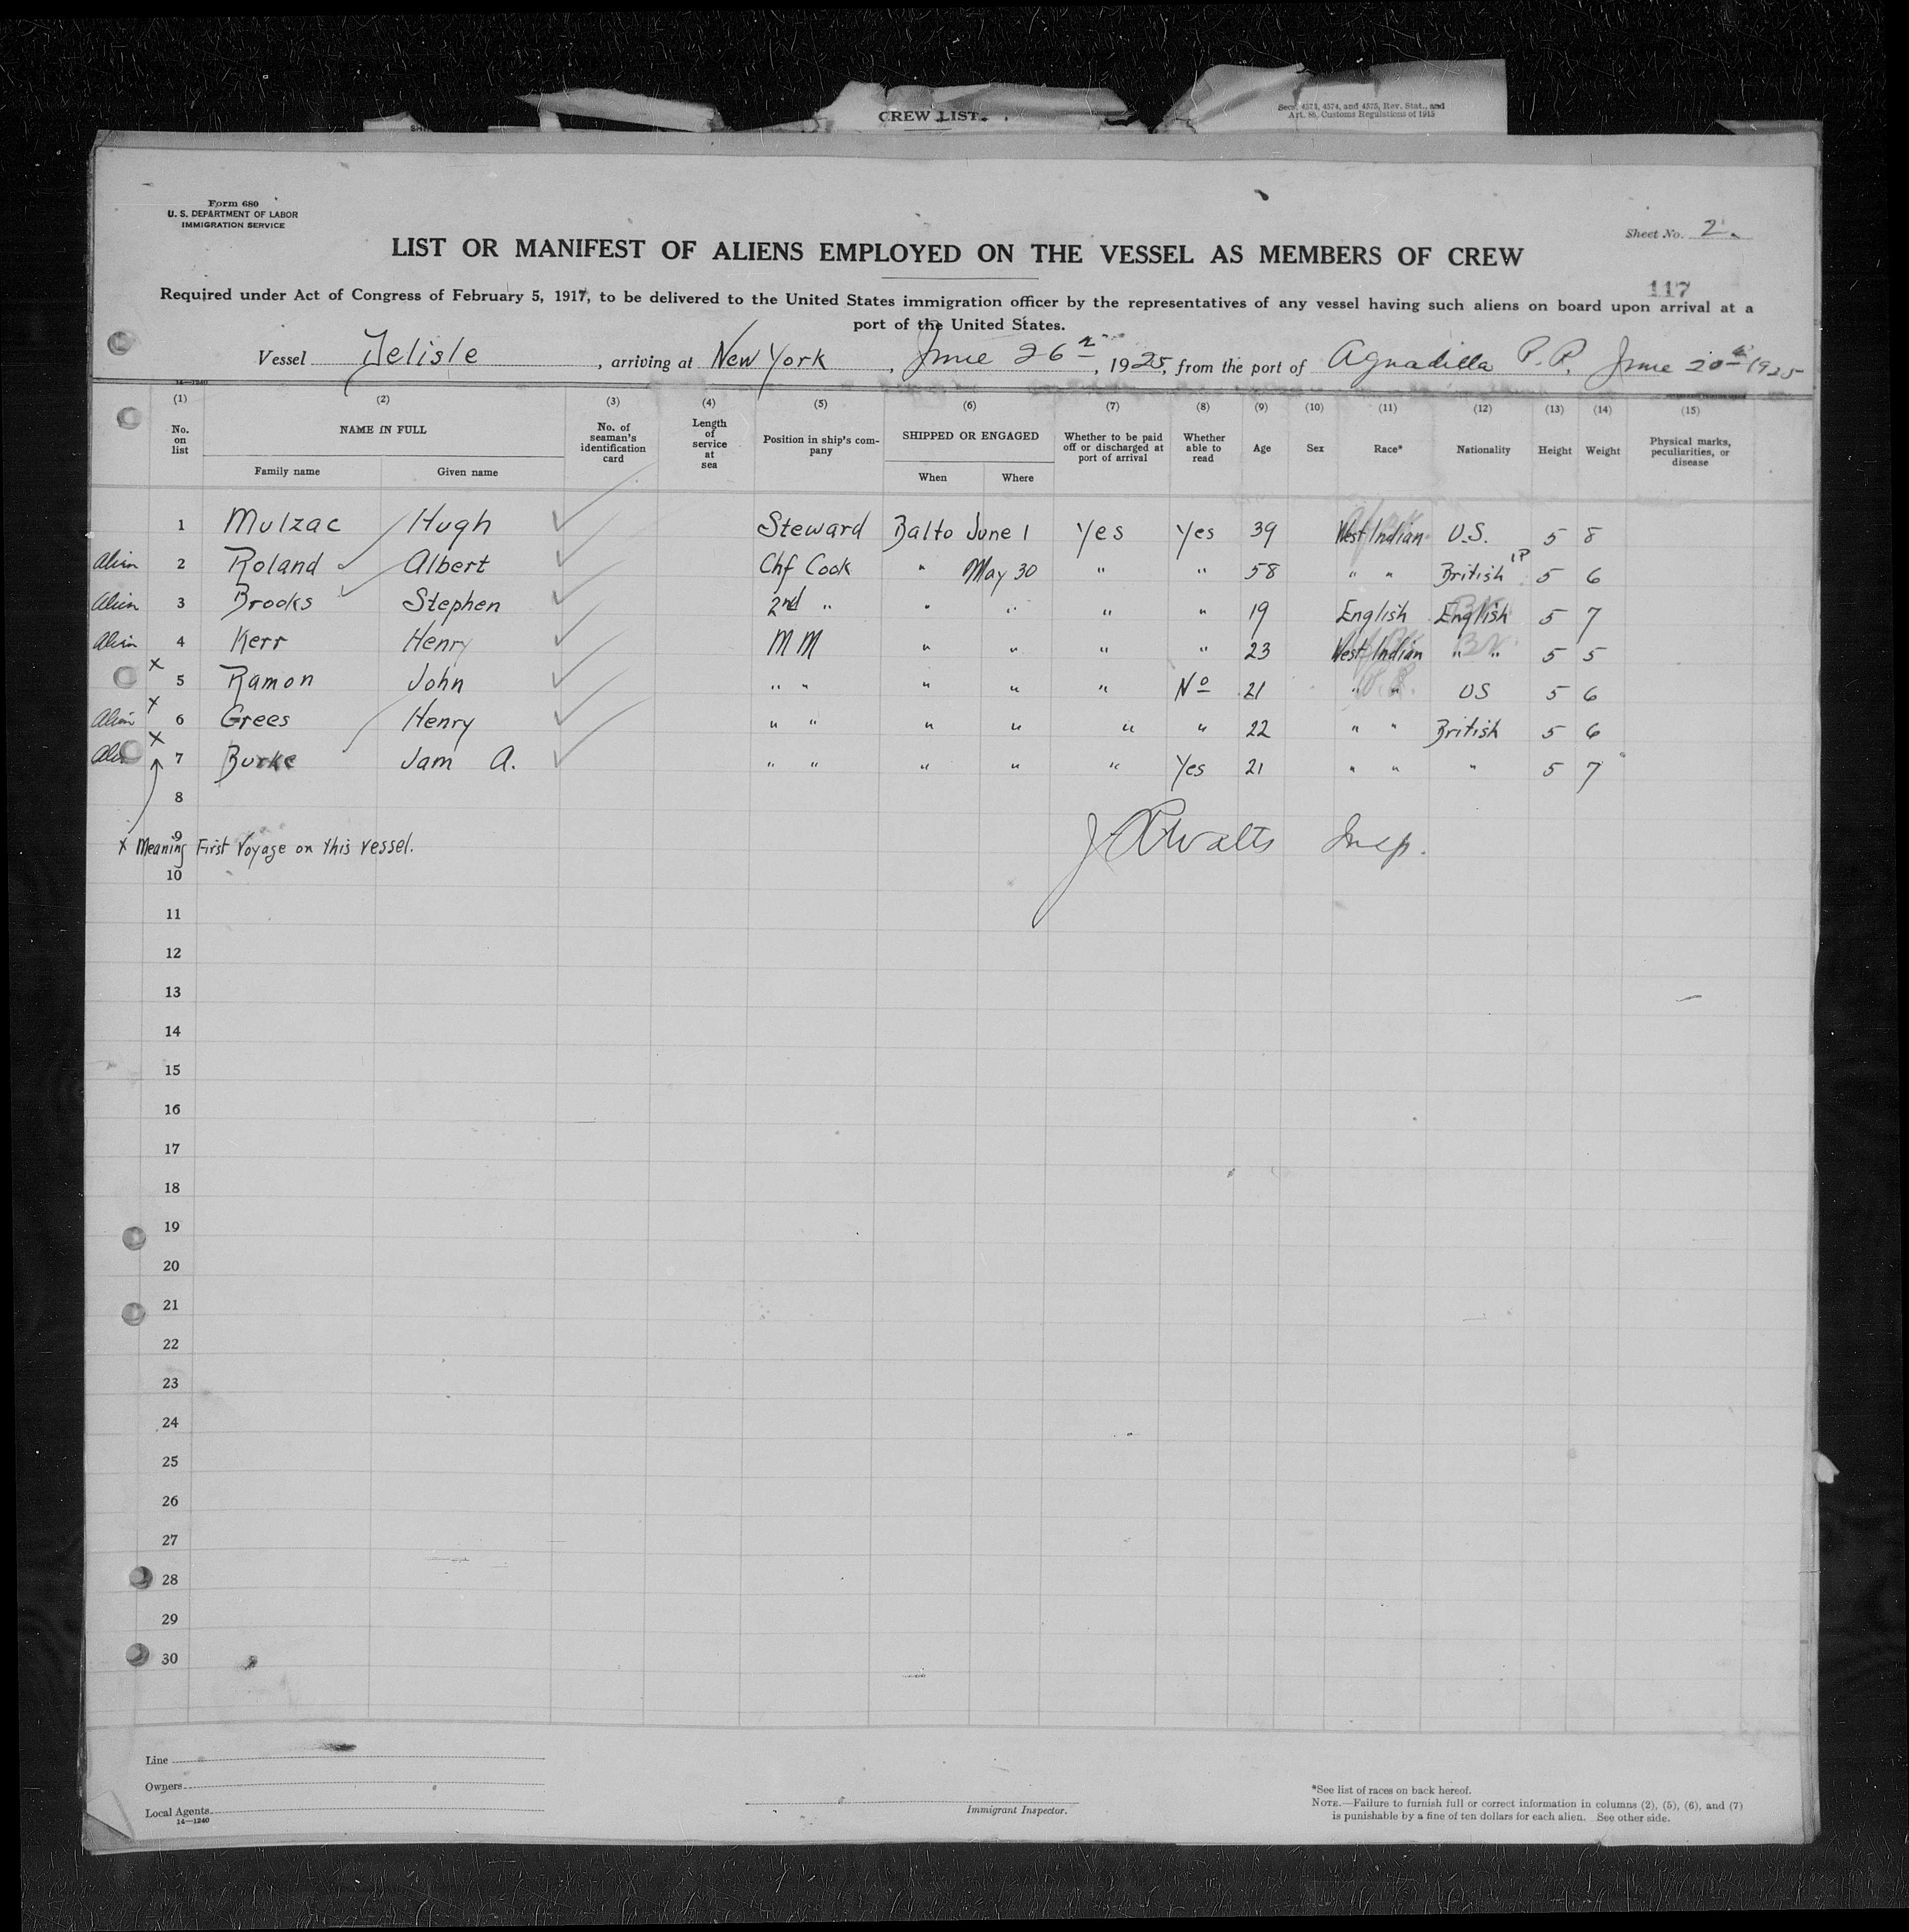 CREW LIST.
Secs. 4573, 4574, and 4575, Rev. Stat., and
Art. 86, Customs Regulations of 1915
Form 680
U. S. DEPARTMENT OF LABOR
IMMIGRATION SERVICE
Sheet No. 2.
LIST OR MANIFEST OF ALIENS EMPLOYED ON THE VESSEL AS MEMBERS OF CREW
117
Required under Act of Congress of February 5, 1917, to be delivered to the United States immigration officer by the representatives of any vessel having such aliens on board upon arrival at a
port of the United States.
Vessel Delisle, arriving at New York, June 26, 1925, from the port of Aguadilla P.R. June 20th 1925
14—1240
(1) (2) (3) (4) (5) (6) (7) (8) (9) (10) (11) (12) (13) (14) (15)
No. on list NAME IN FULL Family name Given name No. of seaman's identification card Length of service at sea Position in ship's company SHIPPED OR ENGAGED When Where Whether to be paid off or discharged at port of arrival Whether able to read Age Sex Race* Nationality Height Weight Physical marks, peculiarities, or disease
1 Mulzac Hugh Steward Balto June 1 Yes Yes 39 West Indian U.S. 5 8
Alien 2 Roland Albert Chf Cook " May 30 " " 58 " " British 5 6
Alien 3 Brooks Stephen 2nd " " " " " 19 English English 5 7
Alien 4 Kerr Henry M M " " " " 23 West Indian " " 5 5
x 5 Ramon John " " " " " No 21 " " US 5 6
Alien x 6 Grees Henry " " " " " " 22 " " British 5 6
Alien x 7 Burke Jam A. " " " " " Yes 21 " " " 5 7
8
9
x Meaning First Voyage on this vessel.
Insp.
10
11
12
13
14
15
16
17
18
19
20
21
22
23
24
25
26
27
28
29
30
Line
Owners
Local Agents
14—1240
Immigrant Inspector.
*See list of races on back hereof.
NOTE.—Failure to furnish full or correct information in columns (2), (5), (6), and (7)
is punishable by a fine of ten dollars for each alien. See other side.